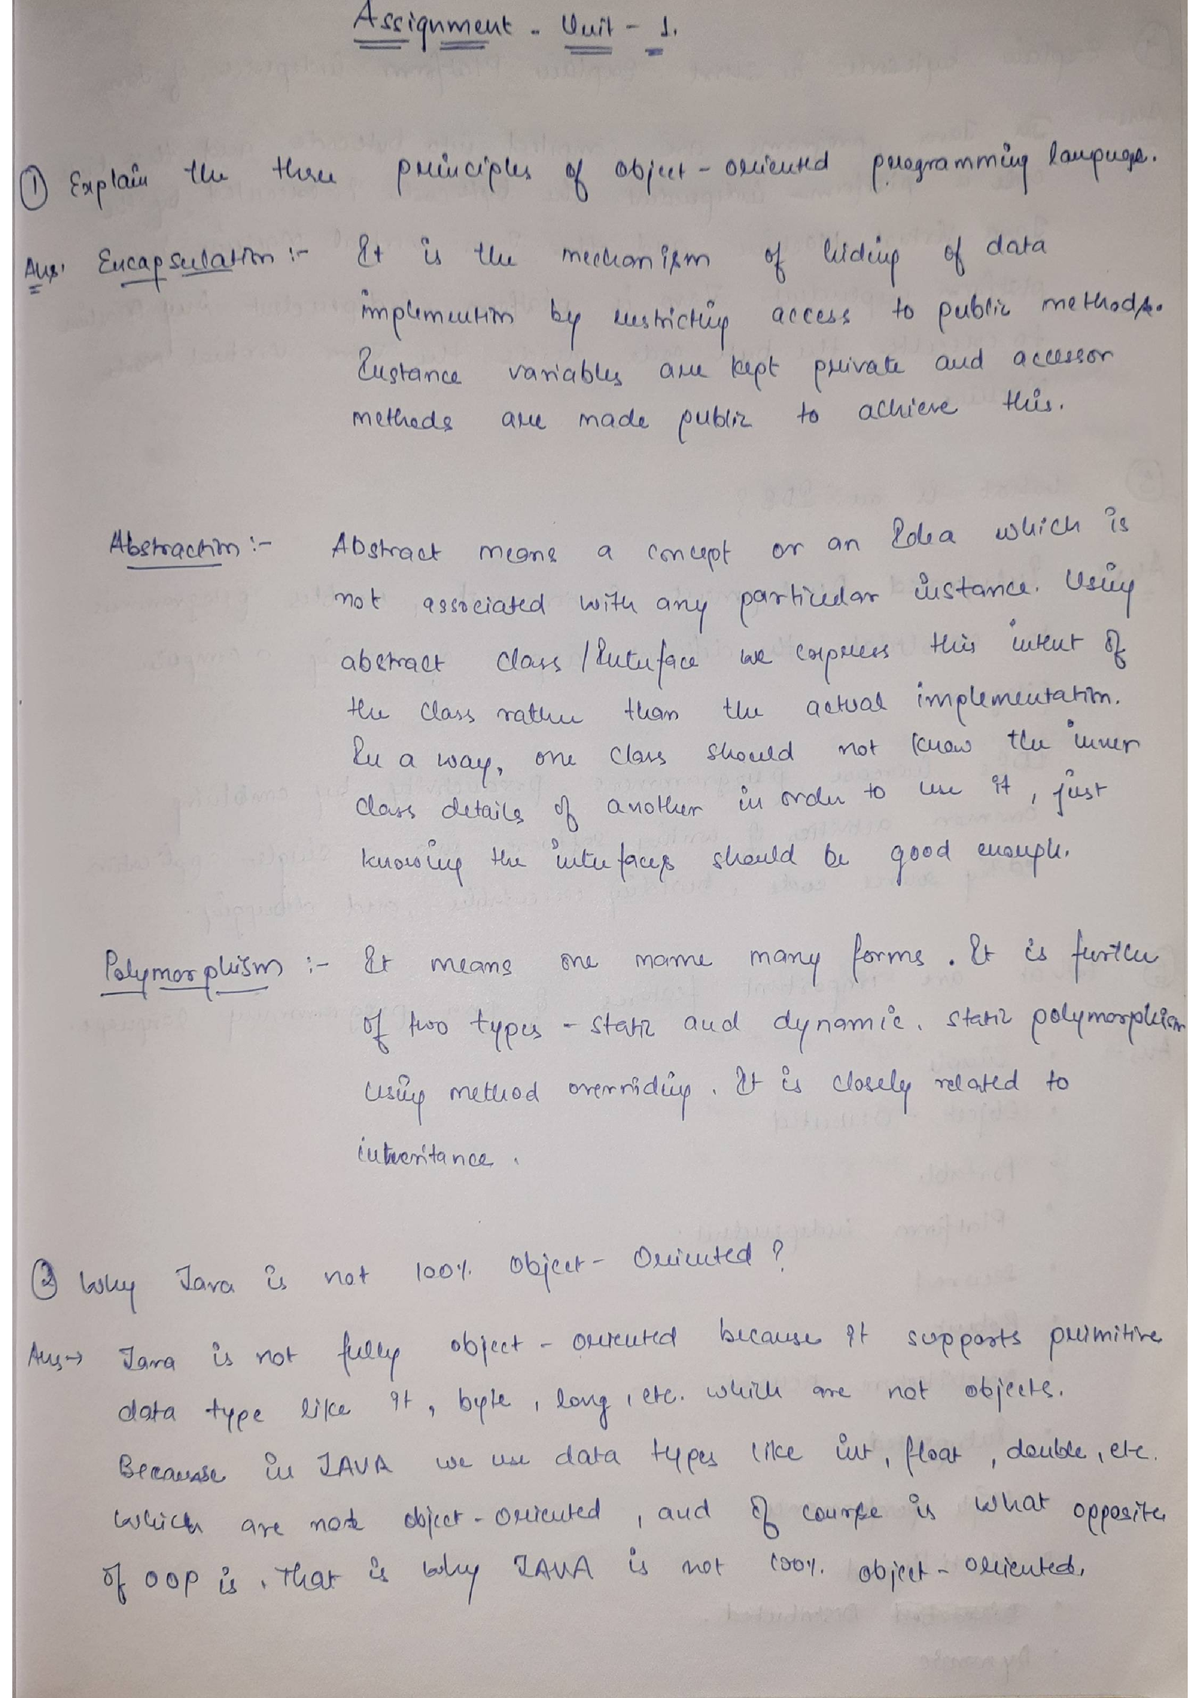 Assignment - Unit - 1.
① Explain the three principles of object-oriented programming language.
Ans. Encapsulation :- It is the mechanism of hiding of data
implementation by restricting access to public methods.
Instance variables are kept private and accessor
methods are made public to achieve this.
Abstraction :- Abstract means a concept or an Idea which is
not associated with any particular instance. Using
abstract class/Interface we express this intent of
the class rather than the actual implementation.
In a way, one class should not know the inner
class details of another in order to use it, just
knowing the interfaces should be good enough.
Polymorphism :- It means one name many forms. It is further
of two types - static and dynamic. static polymorphism
using method overriding. It is closely related to
inheritance.
② Why Java is not 100% object-Oriented?
Ans→ Java is not fully object-oriented because it supports primitive
data type like it, byte, long, etc. which are not objects.
Because in JAVA we use data types like int, float, double, etc.
which are not object-oriented, and of course is what opposite
of OOP is. That is why JAVA is not 100% object-oriented.